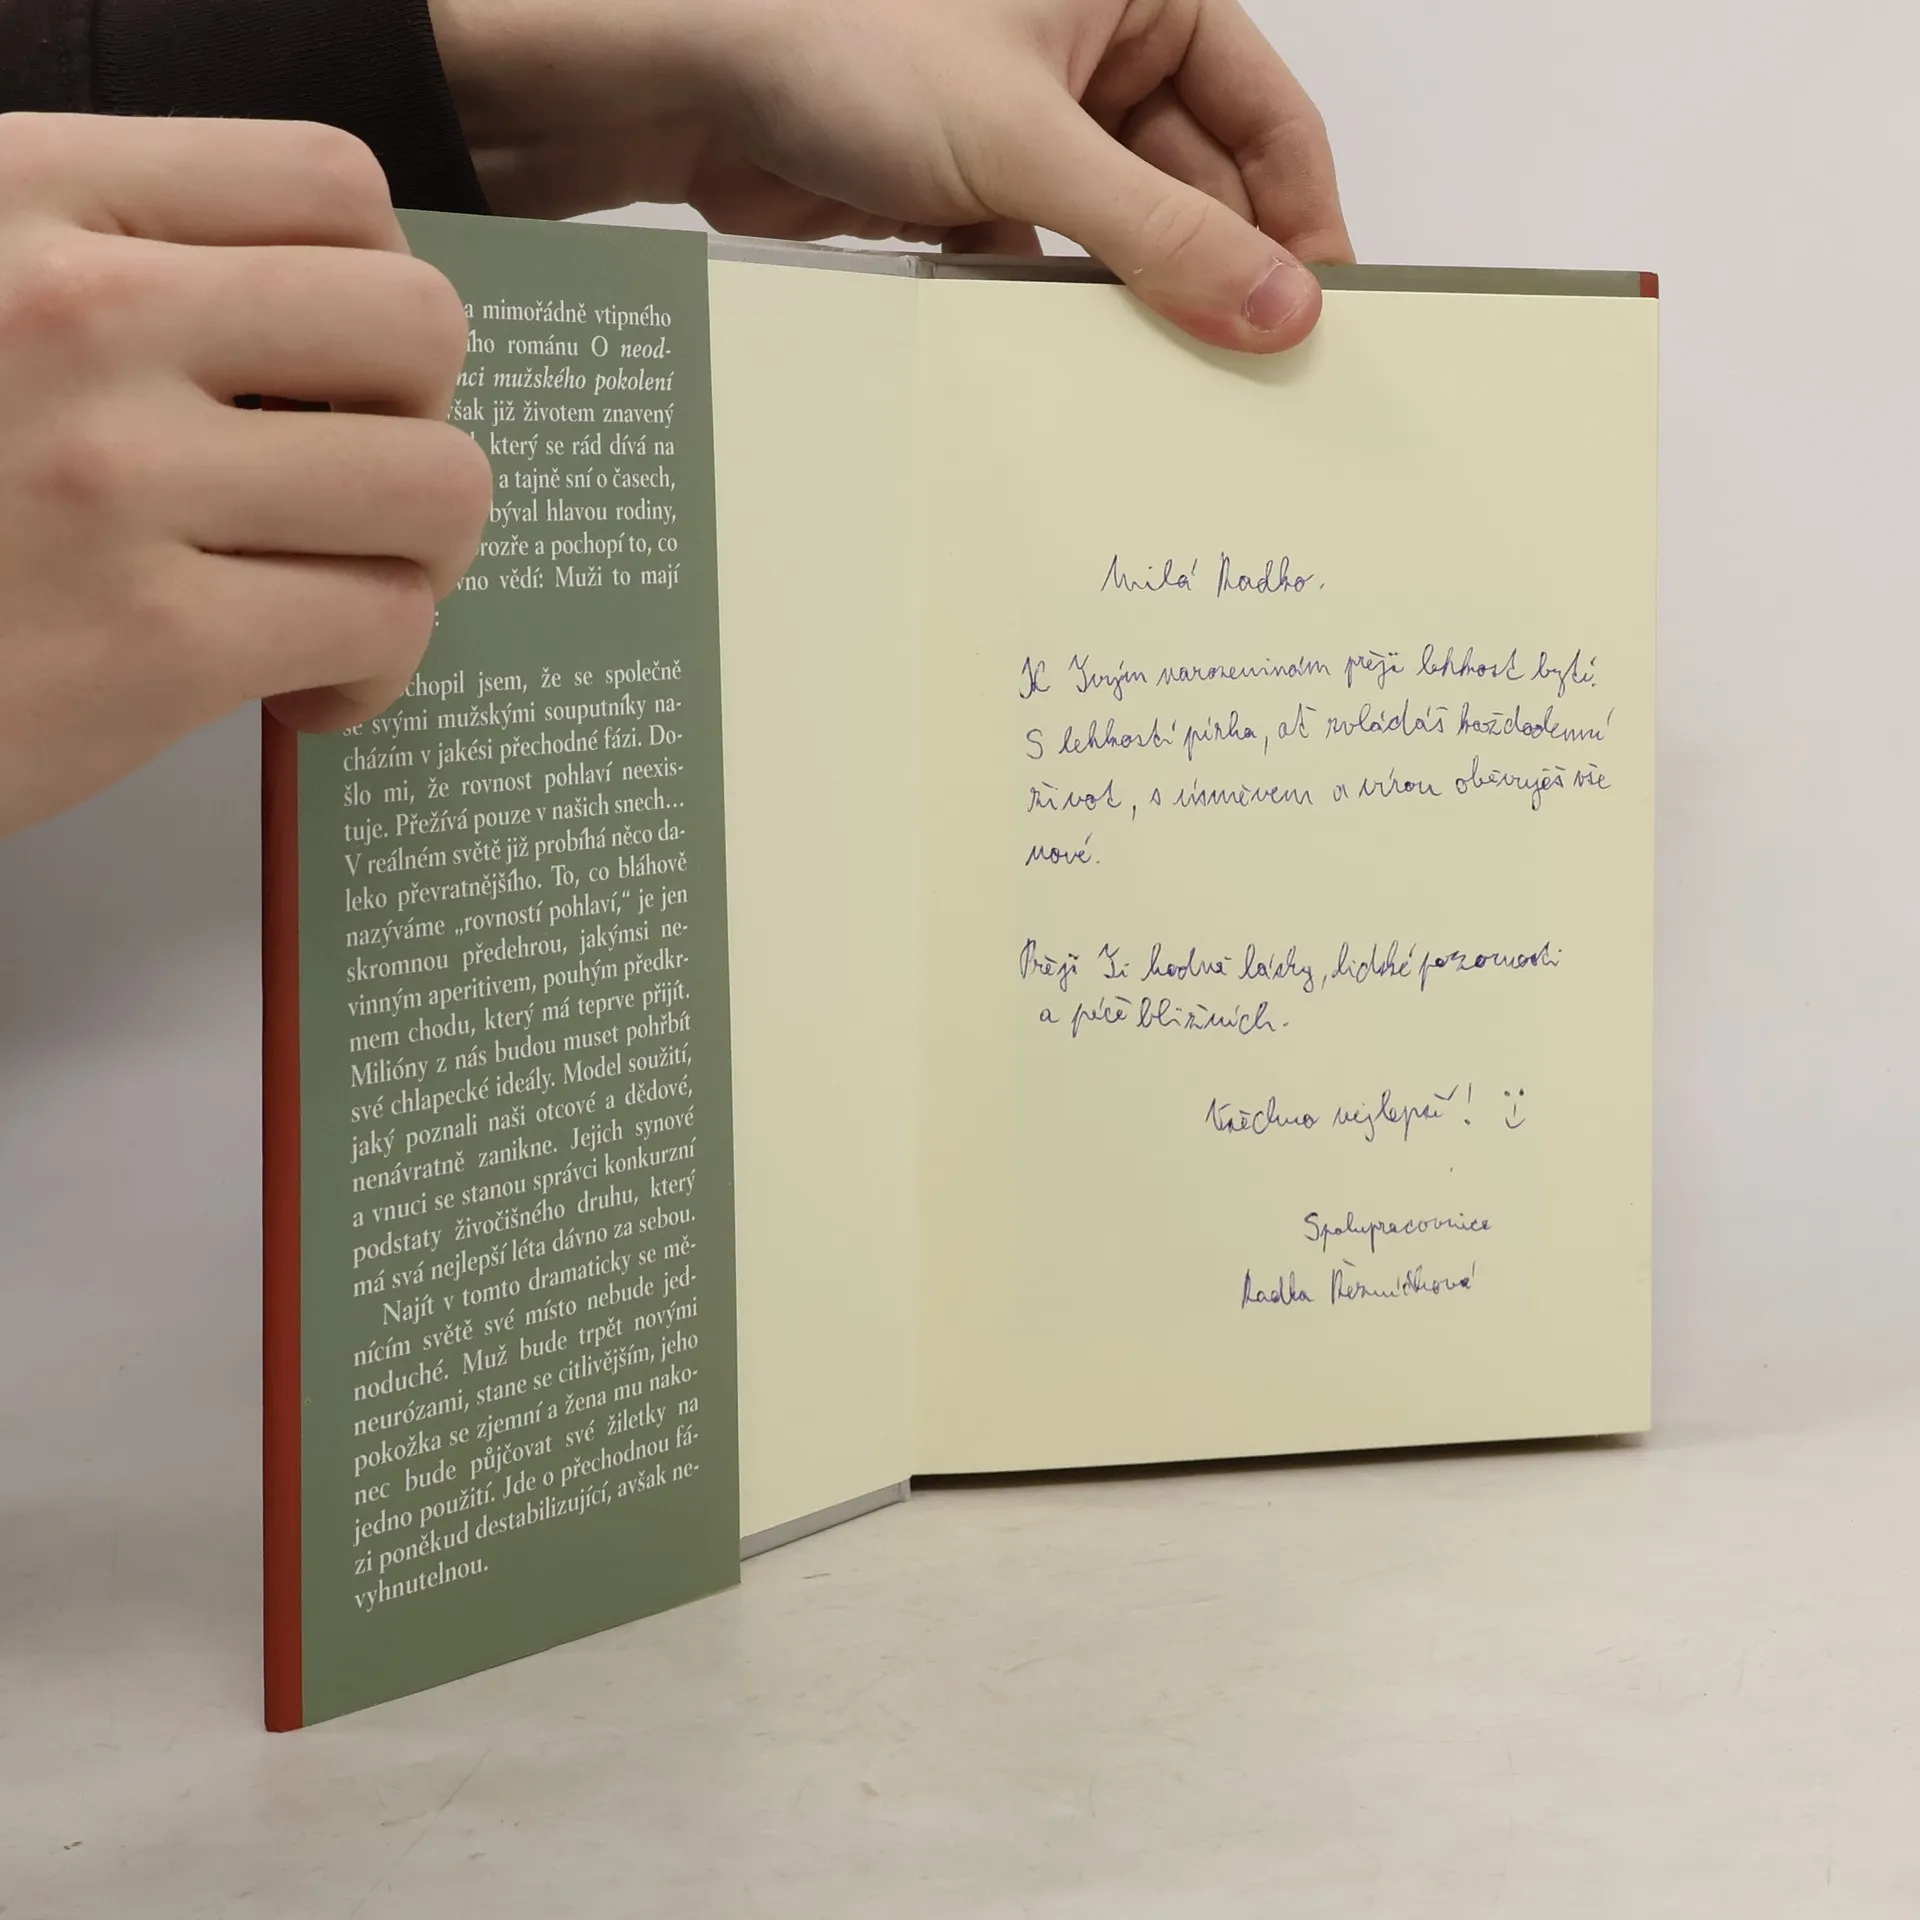 a mimořádně vtipného
ího románu O neod-
nci mužského pokolení
však již životem znavený
který se rád dívá na
a tajně sní o časech,
býval hlavou rodiny,
rozře a pochopí to, co
vno vědí: Muži to mají
:
chopil jsem, že se společně
se svými mužskými souputníky na-
cházím v jakési přechodné fázi. Do-
šlo mi, že rovnost pohlaví neexis-
tuje. Přežívá pouze v našich snech...
V reálném světě již probíhá něco da-
leko převratnějšího. To, co bláhově
nazýváme „rovností pohlaví,“ je jen
skromnou předehrou, jakýmsi ne-
vinným aperitivem, pouhým předkr-
mem chodu, který má teprve přijít.
Milióny z nás budou muset pohřbít
své chlapecké ideály. Model soužití,
jaký poznali naši otcové a dědové,
nenávratně zanikne. Jejich synové
a vnuci se stanou správci konkurzní
podstaty živočišného druhu, který
má svá nejlepší léta dávno za sebou.
Najít v tomto dramaticky se mě-
nícím světě své místo nebude jed-
noduché. Muž bude trpět novými
neurózami, stane se citlivějším, jeho
pokožka se zjemní a žena mu nako-
nec bude půjčovat své žiletky na
jedno použití. Jde o přechodnou fá-
zi poněkud destabilizující, avšak ne-
vyhnutelnou.
Milá Radko.
K Tvým narozeninám přeji lehkost bytí.
S lehkostí pírka, ať zvládáš každodenní
život, s úsměvem a vírou objevuješ vše
nové.
Přeji Ti hodně lásky, lidské pozornosti
a péče bližních.
Všechno nejlepší!
Spolupracovnice
Radka Řezníčková